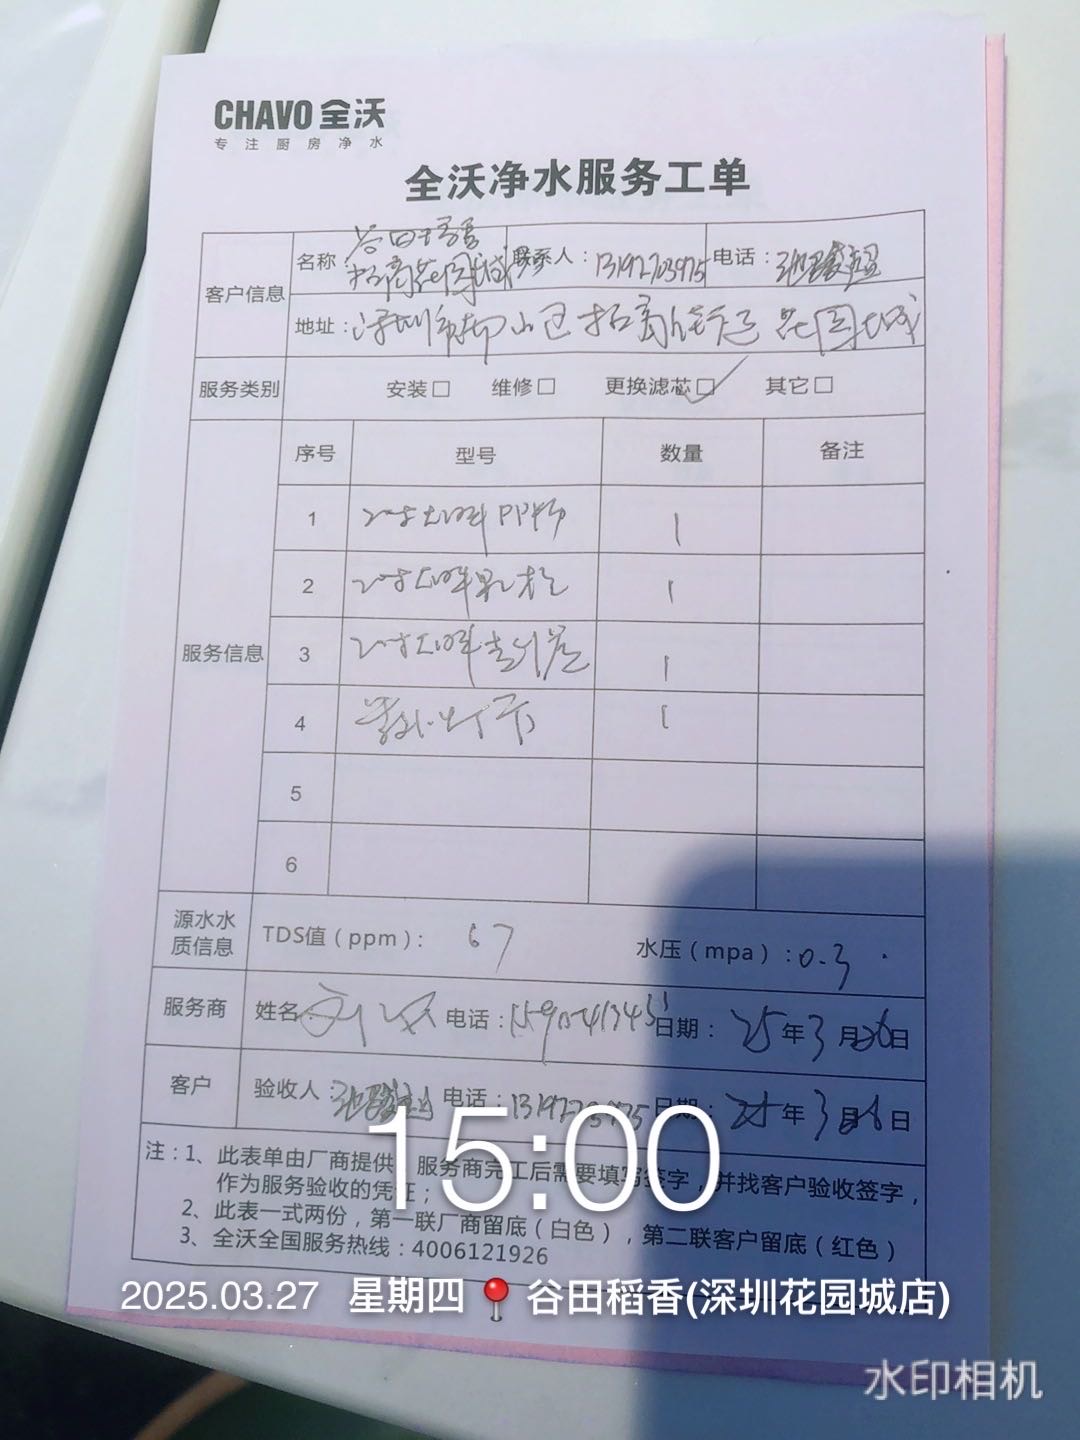 CHAVO 全沃
专注厨房净水
全沃净水服务工单
客户信息 名称 谷田稻香招商花园城 联系人：13192703975 电话：
地址：深圳市南山区招商街道花园城
服务类别 安装□ 维修□ 更换滤芯□✓ 其它□
服务信息 序号 型号 数量 备注
1 20寸大胖PP棉 1
2 20寸大胖 1
3 20寸大胖 1
4 1
5
6
源水水质信息 TDS值（ppm）： 67 水压（mpa）：0.3
服务商 姓名：刘 电话： 日期：25年3月26日
客户 验收人： 电话： 日期：25年3月 日
注：1、此表单由厂商提供，服务商完工后需要填写签字，并找客户验收签字，
作为服务验收的凭证；
2、此表一式两份，第一联厂商留底（白色），第二联客户留底（红色）
3、全沃全国服务热线：4006121926
15:00
2025.03.27 星期四 谷田稻香(深圳花园城店)
水印相机